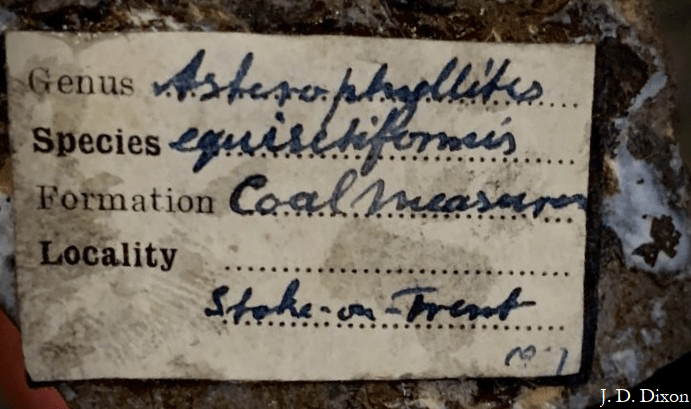 Genus Asterophyllites
Species equisetiformis
Formation Coal Measures
Locality
Stoke-on-Trent
J. D. Dixon